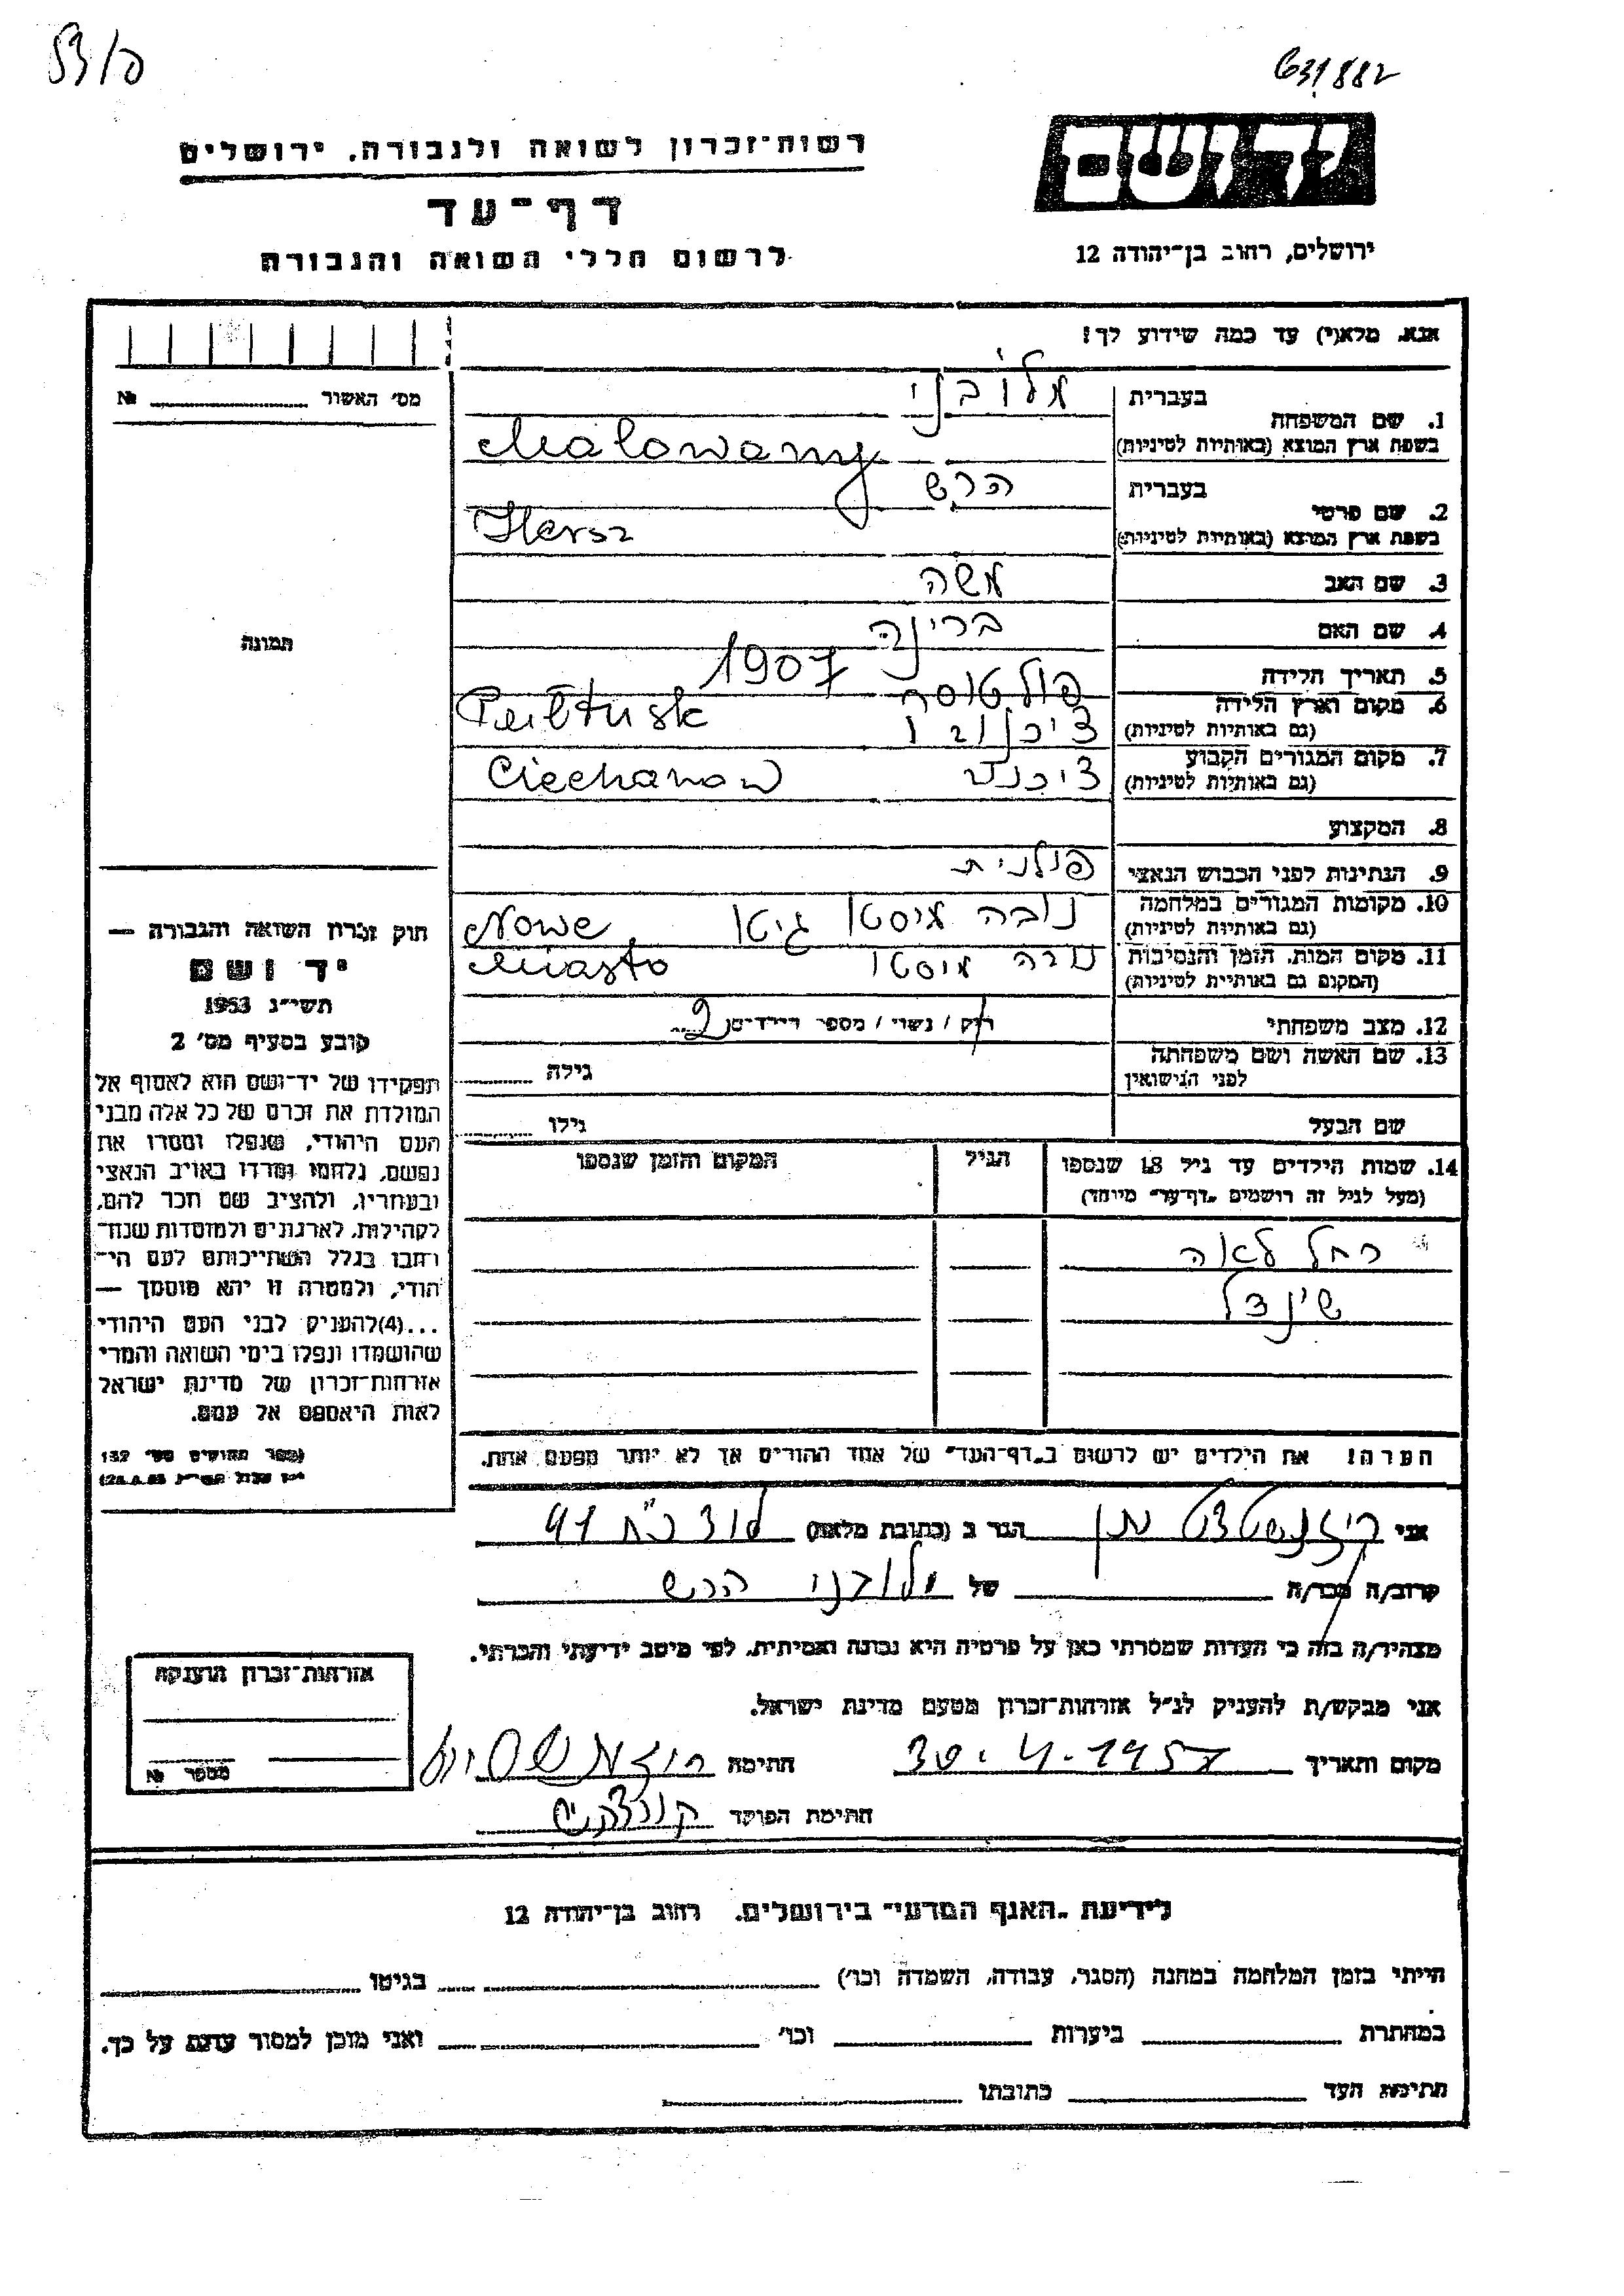 פ/53
631882
יד ושם
רשות-זכרון לשואה ולגבורה, ירושלים
דף-עד
לרשום חללי השואה והגבורה
ירושלים, רחוב בן-יהודה 12
אנא, מלא(י) עד כמה שידוע לך!
מס' האשור № 
1. שם המשפחה
בעברית מלובני
בשפת ארץ המוצא (באותיות לטיניות) Malowany
2. שם פרטי
בעברית הרש
בשפת ארץ המוצא (באותיות לטיניות) Hersz
3. שם האב משה
4. שם האם ברינה
5. תאריך הלידה 1907
6. מקום וארץ הלידה פולטוסק
(גם באותיות לטיניות) Pultusk
7. מקום המגורים הקבוע
(גם באותיות לטיניות) Ciechanow
8. המקצוע
9. הנתינות לפני הכבוש הנאצי פולנית
10. מקומות המגורים במלחמה נובה מיסטו גיטו
(גם באותיות לטיניות) Nowe
11. מקום המות, הזמן והנסיבות נובה מיסטו
(המקום גם באותיות לטיניות) Miasto
12. מצב משפחתי רוק / נשוי / מספר הילדים 2
13. שם האשה ושם משפחתה גילה
לפני הנישואין
שם הבעל גילו
14. שמות הילדים עד גיל 18 שנספו הגיל המקום והזמן שנספו
(מעל לגיל זה רושמים "דף-עד" מיוחד)
רחל לאה
שינדל
הערה! את הילדים יש לרשום ב"דף-העד" של אחד ההורים אך לא יותר מפעם אחת.
תמונה
חוק זכרון השואה והגבורה —
יד ושם
תשי"ג 1953
קובע בסעיף מס' 2
תפקידו של יד-ושם הוא לאסוף אל
המולדת את זכרם של כל אלה מבני
העם היהודי, שנפלו ומסרו את
נפשם, נלחמו ומרדו באויב הנאצי
ובעוזריו, ולהציב שם וזכר להם,
לקהילות, לארגונים ולמוסדות שנח-
רבו בגלל השתייכותם לעם הי-
הודי, ולמטרה זו יהא מוסמך —
...(4)להעניק לבני העם היהודי
שהושמדו ונפלו בימי השואה והמרי
אזרחות-זכרון של מדינת ישראל
לאות היאספם אל עמם.
(ספר החוקים מס' 132
אני הגר ב (כתובת מלאה)
קרוב/ה מכר/ה של מלובני הרש
מצהיר/ה בזה כי העדות שמסרתי כאן על פרטיה היא נכונה ואמיתית, לפי מיטב ידיעתי והכרתי.
אני מבקש/ת להעניק לנ"ל אזרחות-זכרון מטעם מדינת ישראל.
מקום ותאריך 30.4.1957 חתימה
חתימת הפוקד
אזרחות-זכרון הוענקה
מספר №
לידיעת "האגף המדעי" בירושלים, רחוב בן-יהודה 12
הייתי בזמן המלחמה במחנה (הסגר, עבודה, השמדה וכו') בגיטו
במחתרת ביערות וכו' ואני מוכן למסור עדות על כך.
חתימת העד כתובתו